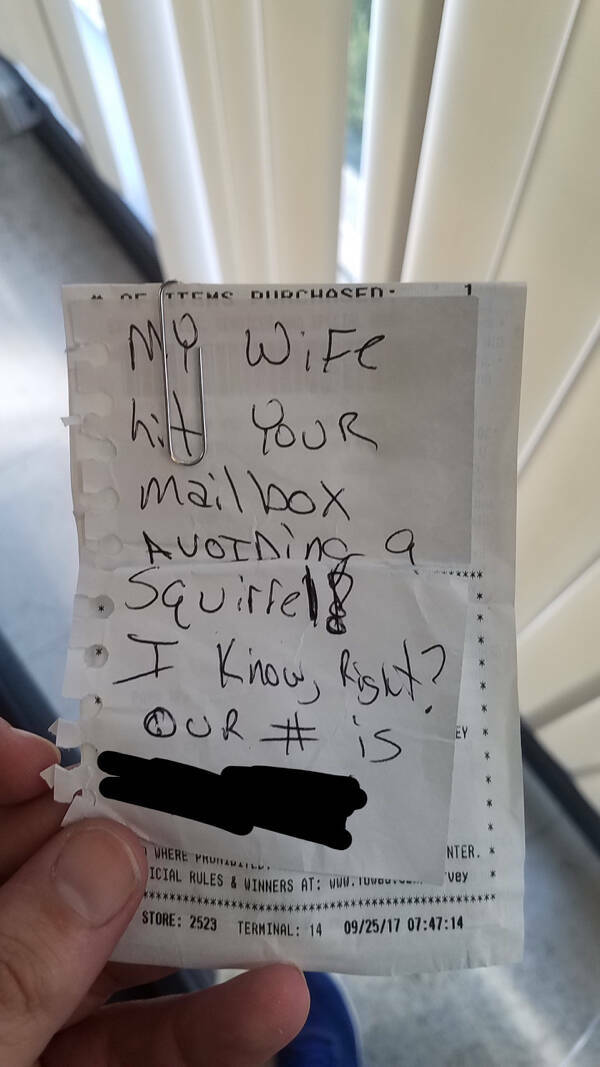 # OF ITEMS PURCHASED: 1
MY WiFe
hit YOUR
mailbox
AVOIDing a
Squirrel!
I Know, Right?
OUR # is
EY *
WHERE PROHIBITED. NTER. *
ICIAL RULES & WINNERS AT: WWW. vey *
STORE: 2523 TERMINAL: 14 09/25/17 07:47:14